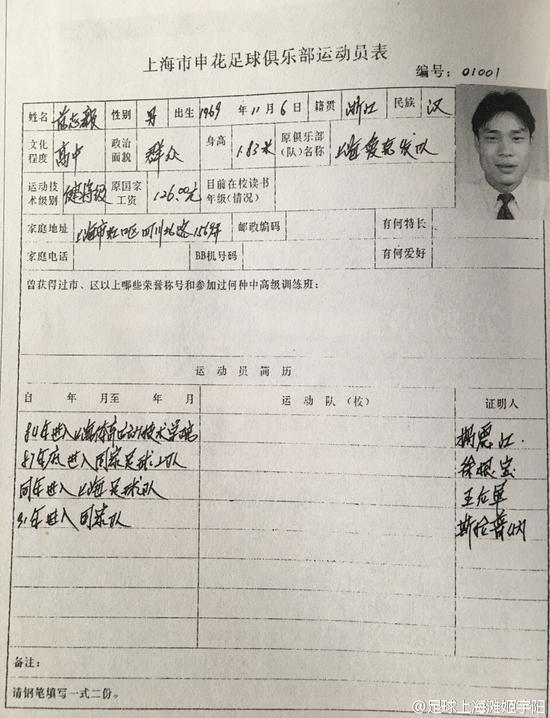 上海市申花足球俱乐部运动员表
编号：01001
姓名 范志毅 性别 男 出生 1969 年 11 月 6 日 籍贯 浙江 民族 汉
文化程度 高中 政治面貌 群众 身高 1.83米 原俱乐部(队)名称 上海 队
运动技术级别 健将级 原国家工资 126.00元 目前在校读书年级(情况)
家庭地址 上海市虹口区四川北路1569弄 邮政编码 有何特长
家庭电话 BB机号码 有何爱好
曾获得过市、区以上哪些荣誉称号和参加过何种中高级训练班：
运动员简历
自 年 月至 年 月 运动队（校） 证明人
84年进入上海体育运动技术学院
87年底进入国家足球二队 徐根宝
同年进入上海足球队 王后军
91年进入国家队 斯拉普纳
备注：
请钢笔填写一式二份。
@足球上海滩姬宇阳